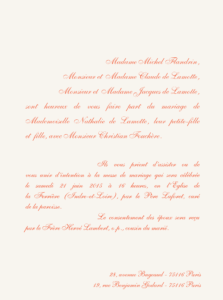 Madame Michel Flandrin,
Monsieur et Madame Claude de Lamotte,
Monsieur et Madame Jacques de Lamotte,
sont heureux de vous faire part du mariage de
Mademoiselle Nathalie de Lamotte, leur petite-fille
et fille, avec Monsieur Christian Fouchère.
Ils vous prient d'assister ou de
vous unir d'intention à la messe de mariage qui sera célébrée
le samedi 21 juin 2015 à 16 heures, en l'Église de
la Ferrière (Indre-et-Loire), par le Père Lefort, curé
de la paroisse.
Le consentement des époux sera reçu
par le Frère Henri Lambert, o.p., cousin du marié.
24, avenue Bugeaud - 75116 Paris
18, rue Benjamin Godard - 75116 Paris